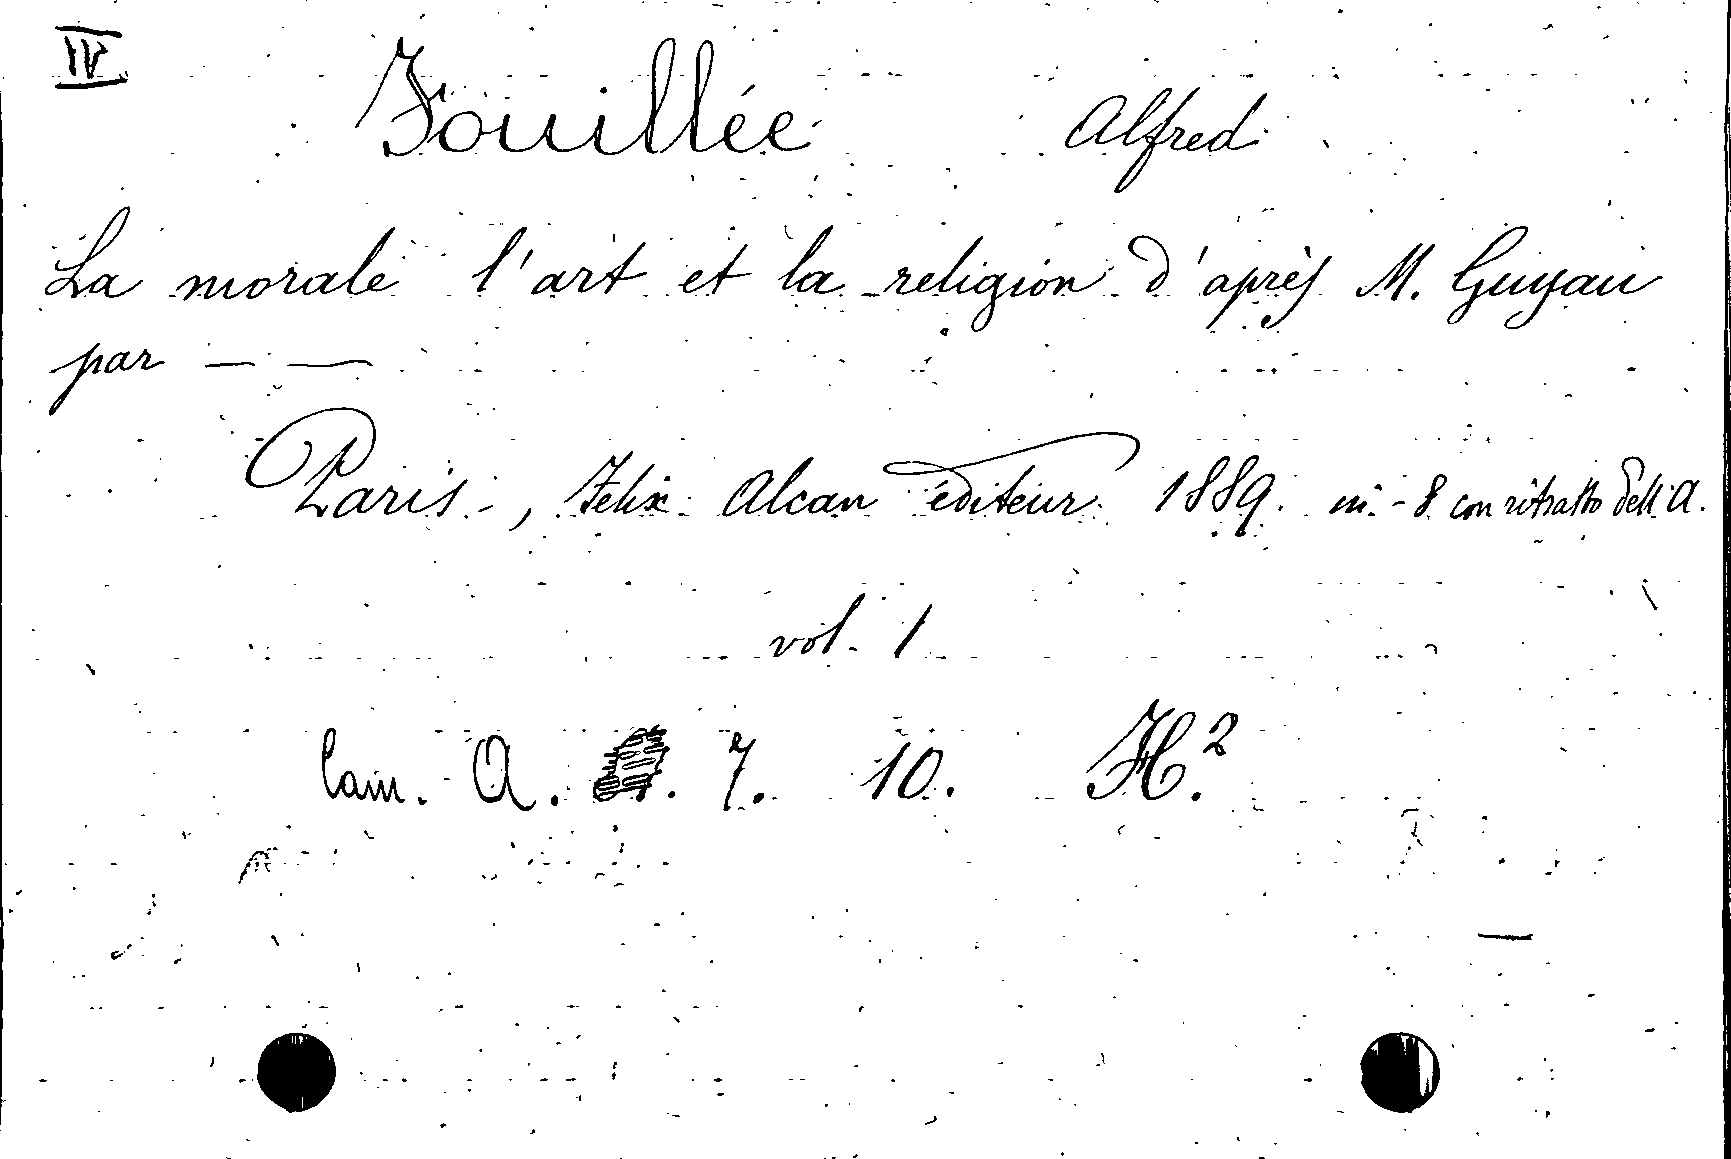 IV
Fouillée Alfred
La morale l'art et la religion d'après M. Guyau
par — —
Paris, Felix Alcan éditeur 1889. in-8 con ritratto dell'A.
vol. 1
Cam. A. 7. 10. H.²